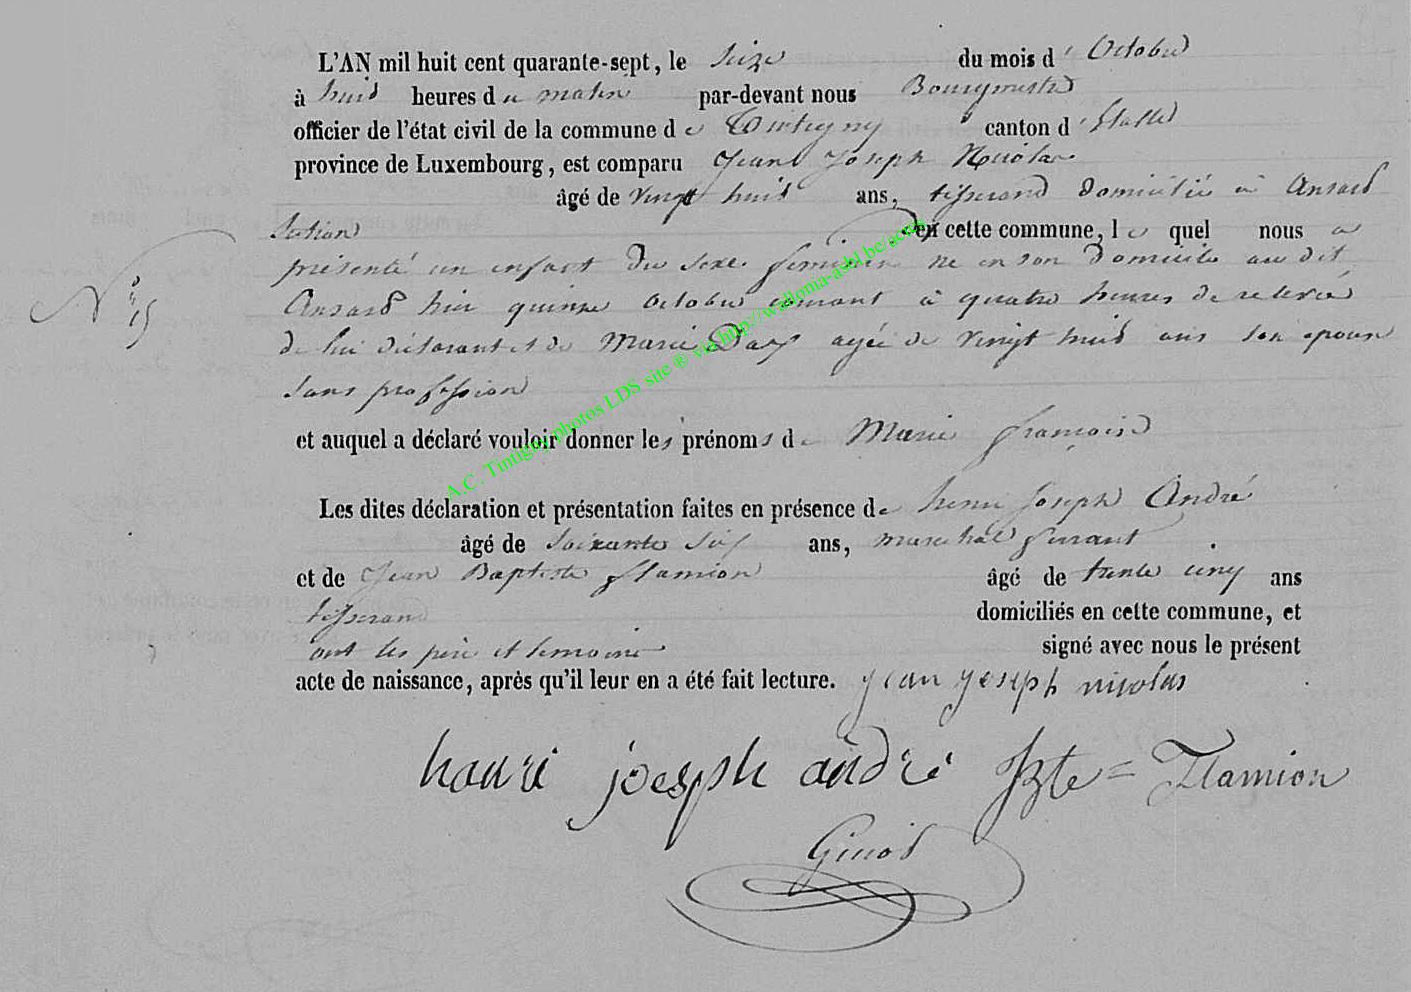 L'AN mil huit cent quarante-sept, le seize du mois d' Octobre
à huit heures du matin par-devant nous Bourgmestre
officier de l'état civil de la commune de Tintigny canton d'Etalle
province de Luxembourg, est comparu Jean Joseph Nicolas
âgé de vingt huit ans, tisserand domicilié à Ansart
section en cette commune, le quel nous a
présenté un enfant du sexe féminin né en son domicile au dit
N° 15
Ansart hier quinze octobre courant à quatre heures de relevée
de lui déclarant et de Marie agée de vingt huit ans son epouse
sans profession
et auquel a déclaré vouloir donner les prénoms de Marie françoise
Les dites déclaration et présentation faites en présence de henri Joseph André
âgé de soixante six ans, marechal ferrant
et de Jean Baptiste flamion âgé de trente cinq ans
tisserand domiciliés en cette commune, et
ont les père et temoins signé avec nous le présent
acte de naissance, après qu'il leur en a été fait lecture. jean joseph nicolas
henri joseph andré JBte = Flamion
A.C. Tintigny photos LDS site ® via http://wallonia-asbl.be/actes